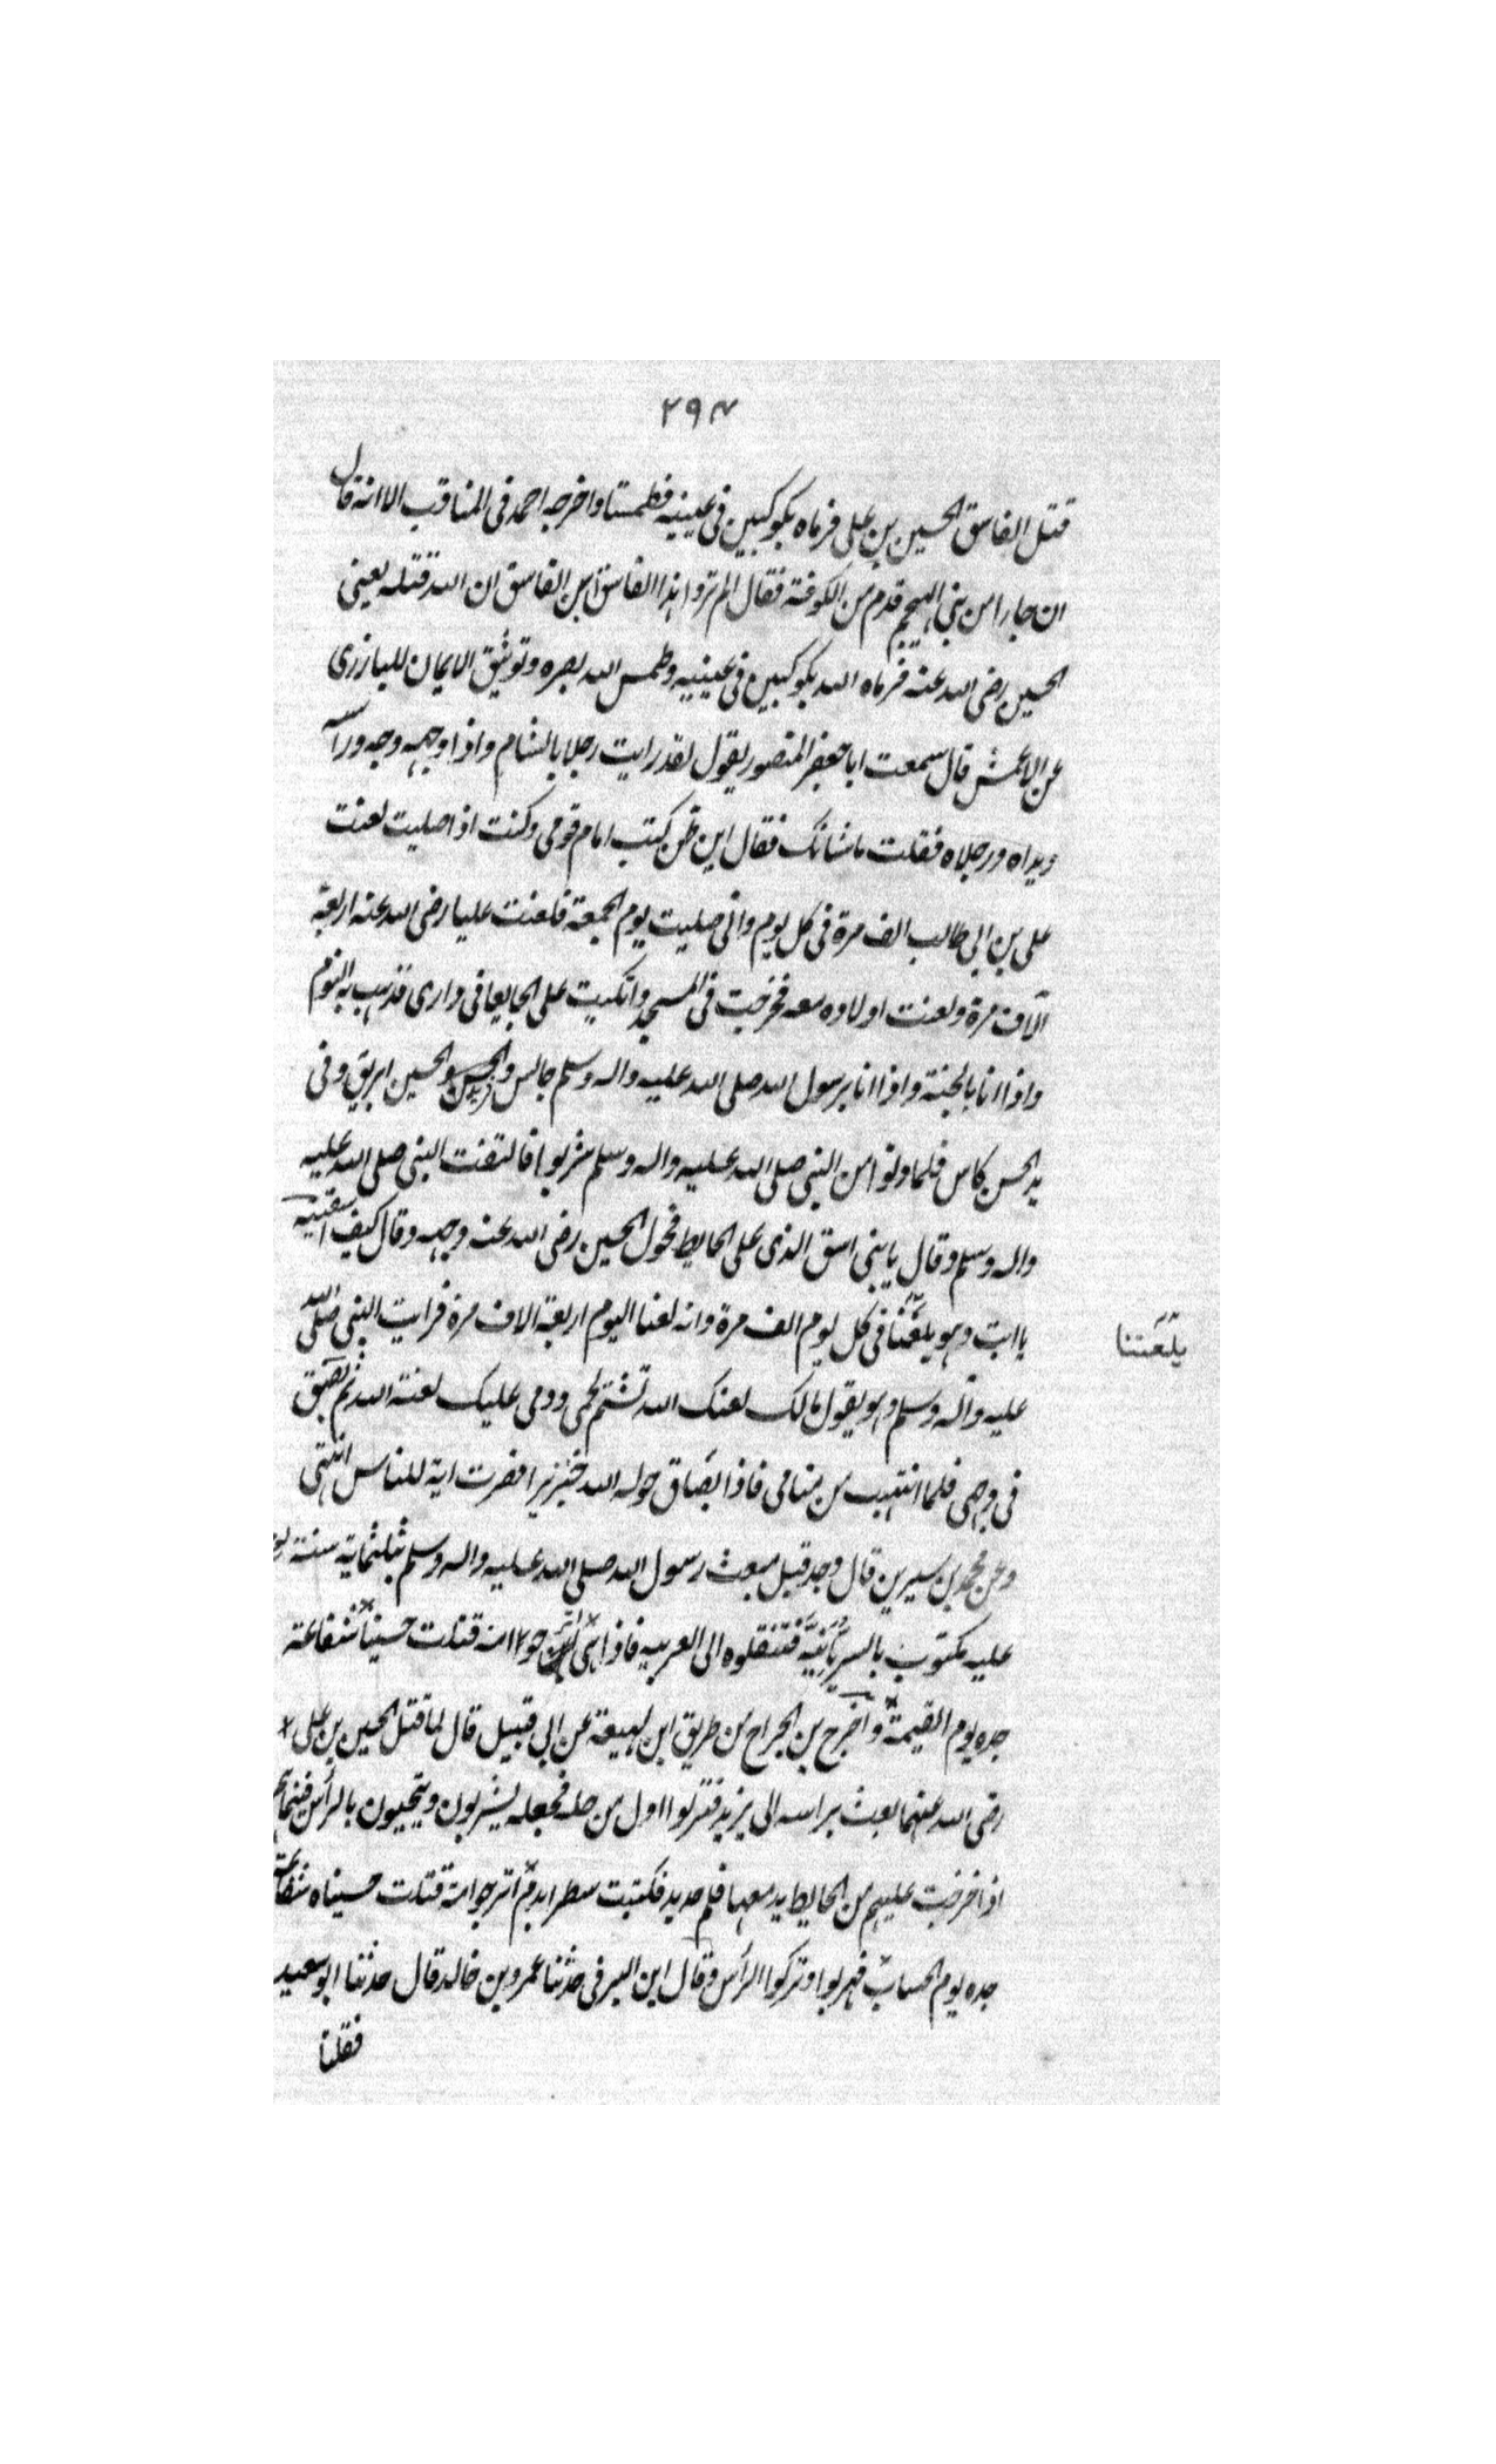 ٢٩٧
قتل الفاسق الحسين بن على فرماه بكوكبين فى عينيه فطمستا واخرجه احمد فى المناقب الا انه قال
ان جارا من بنى الهجيم قدم من الكوفة فقال الم تروا هذا الفاسق ابن الفاسق ان الله قتله يعنى
الحسين رضى الله عنه فرماه الله بكوكبين فى عينيه وطمس الله بصره وتوثيق الايمان للبازرى
عن الاعمش قال سمعت ابا جعفر المنصور يقول لقد رايت رجلا بالشام واذا وجهه وجه وراسه
ويداه ورجلاه فقلت ما شانك فقال كنت امام قومى وكنت اذا صليت لعنت
على بن ابى طالب الف مرة فى كل يوم وانى صليت يوم الجمعة فلعنت عليا رضى الله عنه اربعة
آلاف مرة ولعنت اولاده معه فخرجت فى المسجد واتكيت على فى دارى فذهب به النوم
واذا انا بالجنة واذا انا برسول الله صلى الله عليه واله وسلم جالس والحسن والحسين ابريق وفى
يد الحسن كاس فلما دنوا من النبى صلى الله عليه واله وسلم شربوا فالتفت النبى صلى الله عليه
واله وسلم وقال يا بنى اسق الذى على الحايط فحول الحسين رضى الله عنه وجهه وقال كيف اسقيه
يا ابت وهو يلعننا فى كل يوم الف مرة وانه لعننا اليوم اربعة الاف مرة فرايت النبى صلى الله
يلعننا
عليه وآله وسلم وهو يقول مالك لعنك الله تشتم لحمى ودمى عليك لعنة الله ثم بصق
فى وجهى فلما انتبهت من منامى فاذا بصاق حوله الله خنزيرا فصرت اية للناس انتهى
وعن محمد بن سيرين قال وجد قبل مبعث رسول الله صلى الله عليه واله وسلم بثلثماية سنة
عليه مكتوب بالسريانية فتنقلوه الى العربيه فاذا هى اترجوا امة قتلت حسيناً شفاعة
جده يوم القيمة وآخرج بن الجراح من طريق ابن لهيعة عن ابى قبيل قال لما قتل الحسين بن على
رضى الله عنهما بعث براسه الى يزيد فنزلوا اول مرحلة فجعلوا يشربون ويتحيون بالرأس فبينما هم
اذا خرجت عليهم من الحايط يد معها قلم حديد فكتبت سطرا بدم اترجوا امة قتلت حسينا شفاعة
جده يوم الحساب فهربوا وتركوا الرأس وقال ابن البرقى حدثنا عمرو بن خالد قال حدثنا ابو سعيد
فقلنا